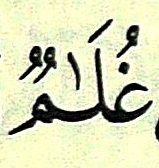 غُلَٰمٌ